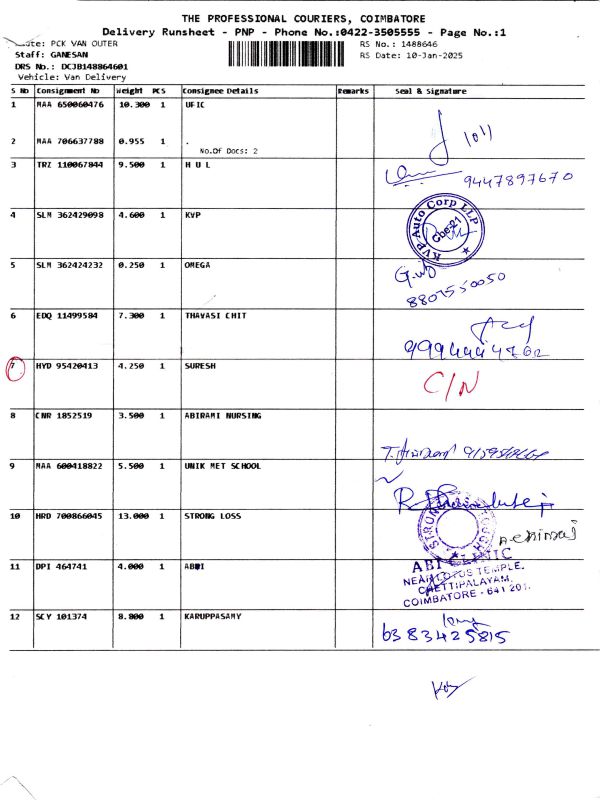 THE PROFESSIONAL COURIERS, COIMBATORE
Delivery Runsheet - PNP - Phone No.:0422-3505555 - Page No.:1
PCK VAN OUTER
RS No.: 1488646
Staff: GANESAN
RS Date: 10-Jan-2025
DRS No.: DCJB148864601
Vehicle: Van Delivery
S No Consignment No Weight PCS Consignee Details Remarks Seal & Signature
1 MAA 650060476 10.300 1 UFIC
2 MAA 706637788 0.955 1 .
No.Of Docs: 2
3 TRZ 110067844 9.500 1 H U L
9447897670
4 SLM 362429098 4.600 1 KVP
KVP Auto Corp LLP
Cbe-21
5 SLM 362424232 0.250 1 OMEGA
8807550050
6 EDQ 11499584 7.300 1 THAVASI CHIT
7 HYD 95420413 4.250 1 SURESH
C/N
8 CNR 1852519 3.500 1 ABIRAMI NURSING
9 MAA 600418822 5.500 1 UNIK MET SCHOOL
10 HRD 700866045 13.000 1 STRONG LOSS
11 DPI 464741 4.000 1
ABI CLINIC
NEAR LOTUS TEMPLE,
CHETTIPALAYAM,
COIMBATORE - 641 201.
12 SCY 101374 8.800 1 KARUPPASAMY
6383425815